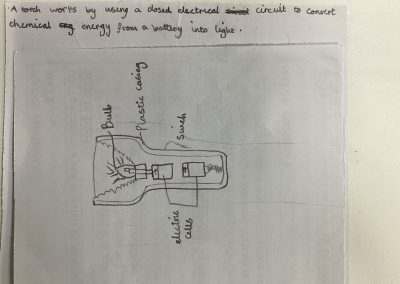 A torch works by using a closed electrical circuit to convert
chemical energy from a battery into light.
Bulb
Plastic casing
Switch
electric
cells